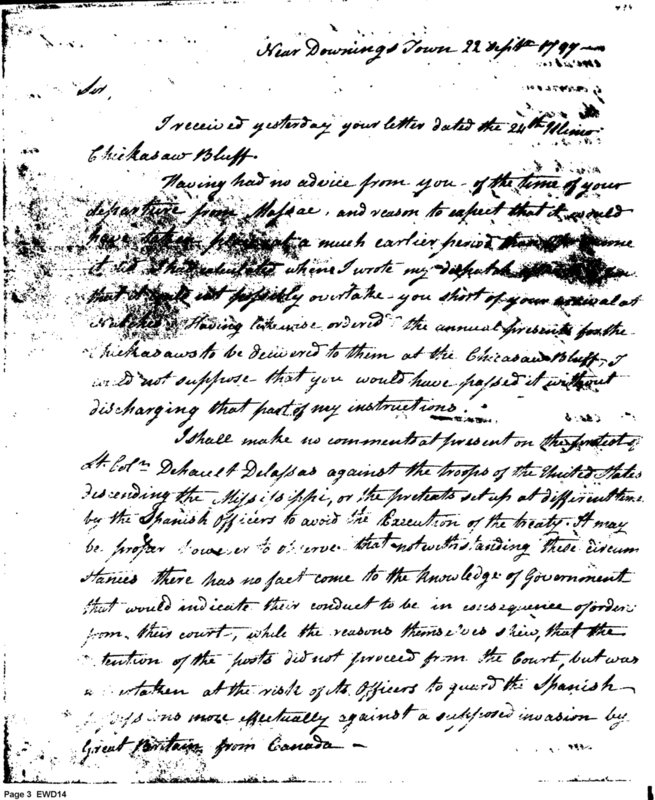 Near Downings Town 22 Septr 1797
Sir,
I received yesterday your letter dated the 24th Ulimo
Chickasaw Bluff.
Having had no advice from you of the time of your
departure from Massac, and reason to expect that it would
have taken place at a much earlier period than
it did I had calculated when I wrote my dispatch
that it could not possibly overtake you short of your arrival at
Natchez. Having likewise ordered the annual presents for the
Chickasaws to be delivered to them at the Chicasaw Bluff, I
could not suppose that you would have passed it without
discharging that part of my instructions.
I shall make no comments at present on the protest of
Lt. Coln Dehault Delassas against the troops of the United States
descending the Missisippi, or the pretexts set up at different time
by the Spanish Officers to avoid the Execution of the treaty. It may
be proper however to observe that notwithstanding these circum
stances there has no fact come to the knowledge of Government
that would indicate their conduct to be in consequence of orders
from their court, while the reasons themselves shew, that the
tention of the posts did not proceed from the Court, but was
undertaken at the risk of its Officers to guard the Spanish
possessions more effectually against a supposed invasion by
Great Britain from Canada —
Page 3 EWD14